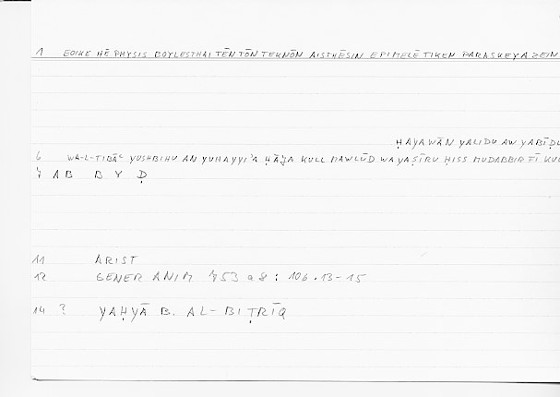 1 EOIKE HĒ PHYSIS BOYLESTHAI TĒN TŌN TEKNŌN AISTHĒSIN EPIMELĒTIKĒN PARASKEYAZEIN
ḤAYAWĀN YALIDU AW YABĪḌU
6 WA-L-ṬIBĀʿ YUSHBIHU AN YUHAYYIʾA ḤĀJA KULL MAWLŪD WA YAṢĪRU ḤISS MUDABBIR FĪ KULL
7 AB B Y Ḍ
11 ARIST
12 GENER ANIM 753 a 8 : 106.13-15
14 ? YAḤYĀ B. AL-BIṬRĪQ